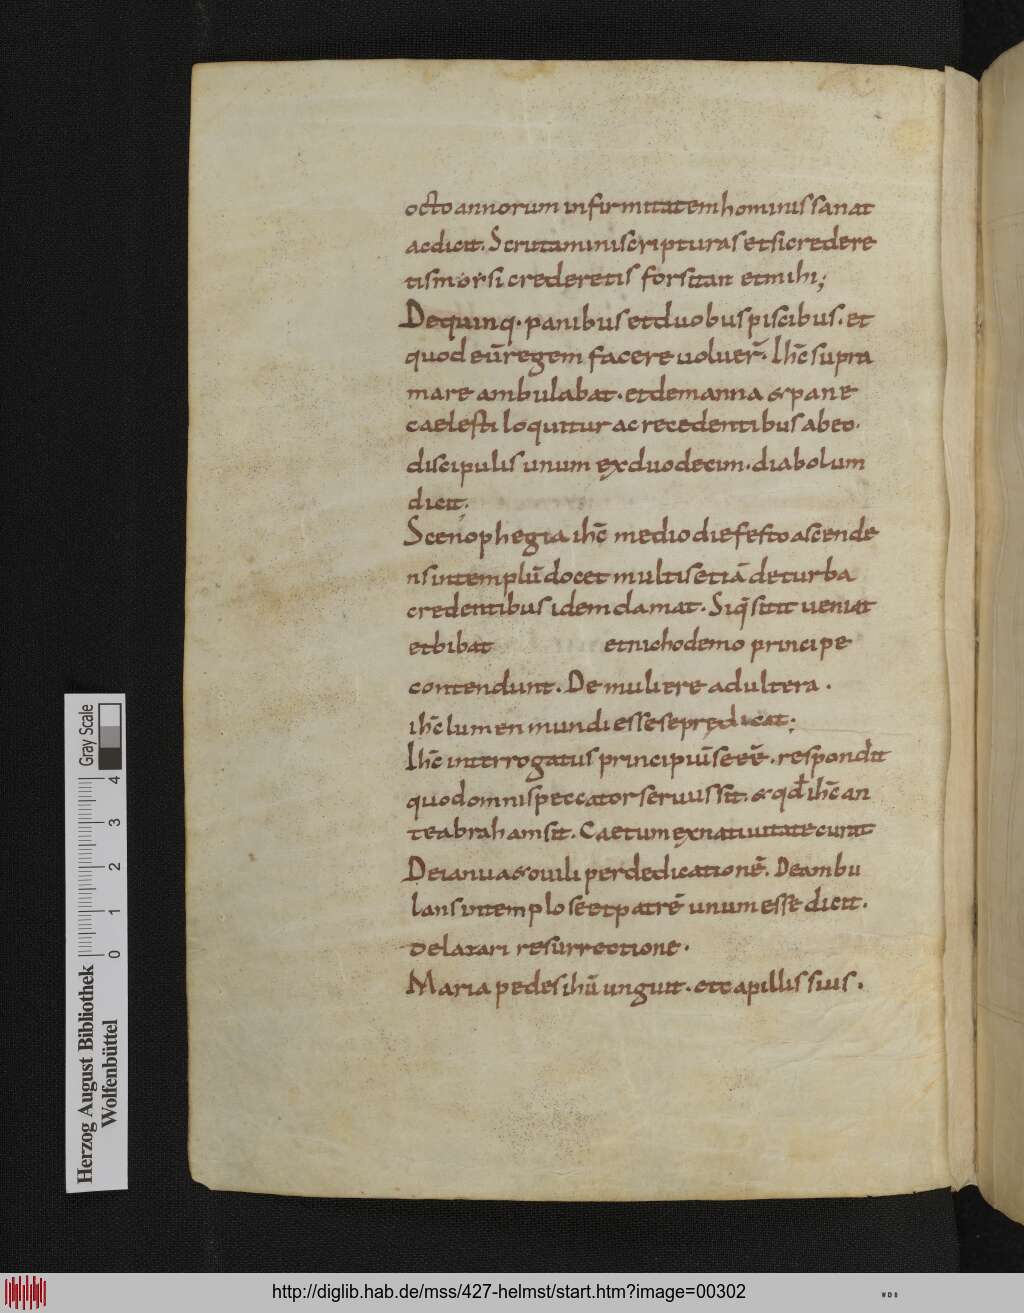 octo annorum infirmitatem hominis sanat
ac dicit. Scrutamini scripturas et si credere
tis morsi crederetis forsitan et mihi;
De quinq. panibus et duobus piscibus. et
quod eū regem facere uoluer̄. Ihc̄ supra
mare ambulabat. et de manna & pane
caelesti loquitur ac recedentibus ab eo.
discipulis unum ex duodecim. diabolum
dicit.
Scenophegia ihc̄ medio die festo ascende
ns in templū docet multis etiā de turba
credentibus idem clamat. Siq̄ sitit ueniat
et bibat et nichodemo principe
contendunt. De muliere adultera.
ihc̄ lumen mundi esse se prędicat;
Ihc̄ interrogatus principiū se eē. respondit
quod omnis peccator seruus sit. & qd̄ ihc̄ an
te abraham sit. Caetum ex natiuitate curat
De ianua & ouili per dedicationē. Deambu
lans in templo se et patrē unum esse dicit.
De lazari resurrectione.
Maria pedes ihū unguit. et capillis suis.
Herzog August Bibliothek
Wolfenbüttel
Gray Scale
0 1 2 3 4
http://diglib.hab.de/mss/427-helmst/start.htm?image=00302